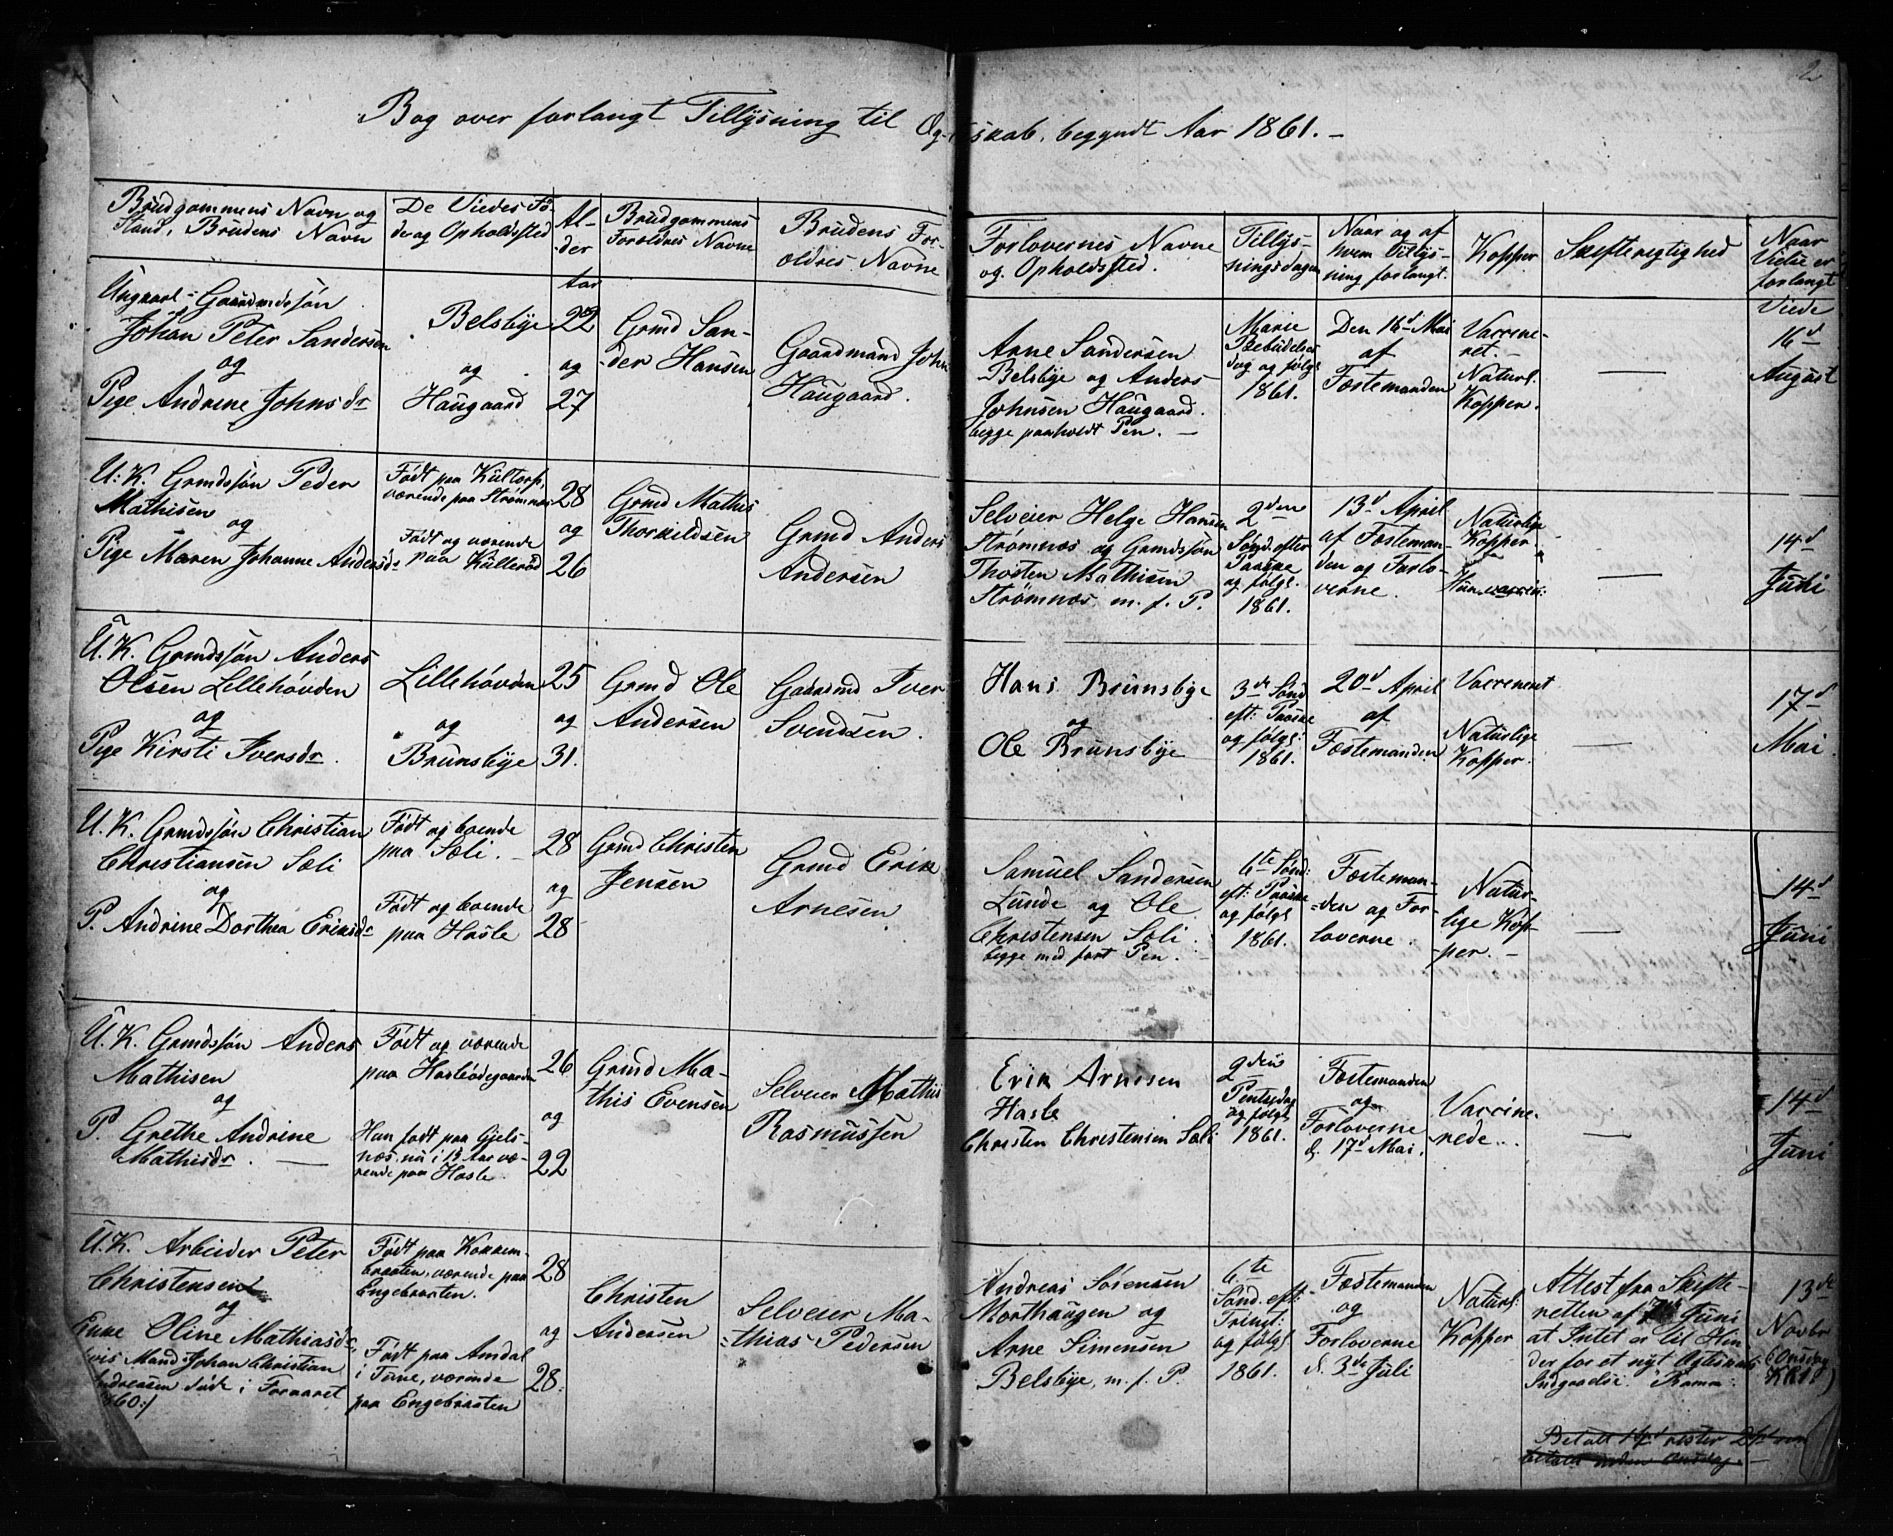 2
Bog over forlangt Tillysning til Ægteskab, begyndt Aar 1861. –
Brudgommens Navn og
Stand, Brudens Navn
De Viedes Fø-
de og Opholdsted
Al-
der
Brudgommens
Forældres Navne
Brudens For-
ældres Navne
Forlovernes Navne
og Opholdsted.
Tillys-
ningsdagen
Naar og af
hvem Tillys-
ning forlangt.
Kopper
Skifterigtighed
Naar
Vielse er
forlangt
Ungkarl Gaardmdssøn
Johan Peter Sandersen
og
Pige Andrine Johnsdr
Belsbye
og
Haugaard
Aar
22
og
27
Grmd San-
der Hansen
Gaardmand John
Haugaard.
Arne Sandersen
Belsbye og Anders
Johnsen Haugaard.
begge paaholdt Pen. –
Marie
Bebudelses
dag og følg.
1861.
Den 16d Mai
af
Fæstemanden
Vaccine-
ret. –
Naturl.
Kopper.
—
Viede
16d
August
U. K. Grmdssøn Peder
Mathisen
og
Pige Maren Johanne Andersdr
Født paa Kultorp,
værende paa Strømnæs
Født og værende
paa Kullerød
28
og
26
Grmd Mathis
Thorkildsen
Grmd Anders
Andersen
Selveier Helge Hansen
Strømnæs og Grmdssøn
Thosten Mathisen
Strømnæs, m. f. P.
2den
Sønd. efter
Paaske
og følg.
1861.
13d April
af Fæsteman-
den og Forlo-
verne.
Naturlige
Kopper.
Hun vaccin:
—
14d
Juni
U. K. Grmdssøn Anders
Olsen Lillehøvden
og
Pige Kirsti Iversdr.
Lillehøvden
og
Brunsbye
25
og
31.
Grmd Ole
Andersen
Gaardmd Iver
Svendsen.
Hans Brunsbye
og
Ole Brunsbye
3de Sønd
eft: Paaske
og følg:
1861.
20d April
af
Fæstemanden
Vaccineret
Naturlige
Kopper.
—
17d
Mai.
U. K. Grmdssøn Christian
Christiansen Sæli
og
P. Andrine Dorthea Eriksdr
Født og boende
paa Sæli. –
Født og boende
paa Hasle
28
og
28
Grmd Christen
Jensen
Grmd Erik
Arnesen
Samuel Sandersen
Lunde og Ole
Christensen Sæli.
begge med ført Pen. –
6te Sønd:
eft. Paaske
og følg.
1861.
Fæsteman-
den og For-
loverne.
Natur-
lige Kop-
per. –
—
14d
Juni
U. K. Grmdssøn Anders
Mathisen
og
P. Grethe Andrine
Mathisdr. —
Født og værende
paa Hasleødegaarden
Hun født paa Gjels-
næs, nu i 13 Aar væ-
rende paa Hasle.
26
og
22
Grmd Ma-
this Evensen
Selveier Mathis
Rasmussen
Erik Arnesen
Hasle
Christen Christensen Sæli
2den
Pentsedag
og følg.
1861.
Fæstemanden
og
Forloverne
d. 17d Mai.
Vaccine-
rede.
—
14d
Juni
U. K. Arbeider Peter
Christensen
og
Enke Oline Mathiasdr,
vis Mand Johan Christian
Andreassen døde i Foraaret
1860:/
Født paa Kokkem-
braaten, værende paa
Engebraaten.
Født paa Amdal
i Tune, værende
paa Engebraaten
28
og
28.
Christen
Andersen
Selveier Ma-
thias Pedersen
Andreas Sørensen
Morthaugen og
Arne Simensen
Belsbye, m. f. P.
6te
Sønd. eft.
Trinit:
og følg.
1861.
Fæstemanden
og
Forloverne
d. 3de Juli
Naturl:
Kopper
Attest fra Skifte-
retten af Juni
at Intet er til Hin-
der for et nyt Ægteskabs
Indgaaelse.
13de
Novbr
(Onsdag
Kl 1)
Betalt rester
betales inden Onsdag